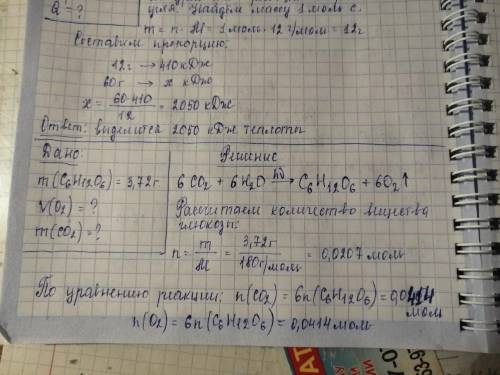 Q - ?
угля. Найдём массу 1 моль С.
m = n · M = 1 моль · 12 г/моль = 12 г
Составим пропорцию:
12г → 410 кДж
60г → x кДж
x = 60·410 / 12 = 2050 кДж
Ответ: выделится 2050 кДж теплоты
Дано:
m(C₆H₁₂O₆) = 3,72г
V(O₂) = ?
m(CO₂) = ?
Решение
6 CO₂ + 6 H₂O hν→ C₆H₁₂O₆ + 6O₂↑
Рассчитаем количество вещества
глюкозы:
n = m / M = 3,72г / 180г/моль = 0,0207 моль
По уравнению реакции: n(CO₂) = 6n(C₆H₁₂O₆) = 0,0414 моль
n(O₂) = 6n(C₆H₁₂O₆) = 0,0414 моль